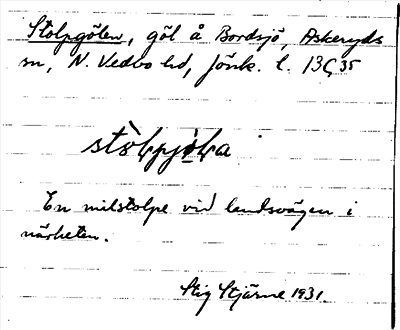 Stolpgölen, göl å Bordsjö, Askeryds
sn, N. Vedbo hd, Jönk. l. 13Ç35
En milstolpe vid landsvägen i
närheten.
Stig Stjärne 1931.